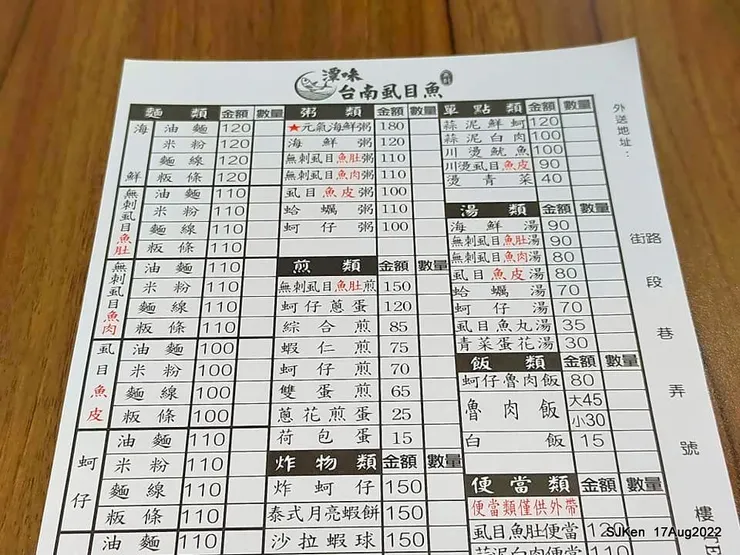 潭味
台南虱目魚
麵類 金額 數量
海鮮
油麵 120
米粉 120
麵線 120
粄條 120
無刺虱目魚肚
油麵 110
米粉 110
麵線 110
粄條 110
無刺虱目魚肉
油麵 110
米粉 110
麵線 110
粄條 110
虱目魚皮
油麵 100
米粉 100
麵線 100
粄條 100
蚵仔
油麵 110
米粉 110
麵線 110
粄條 110
油麵 110
粥類 金額 數量
★元氣海鮮粥 180
海鮮粥 120
無刺虱目魚肚粥 110
無刺虱目魚肉粥 110
虱目魚皮粥 100
蛤蠣粥 110
蚵仔粥 100
煎類 金額 數量
無刺虱目魚肚煎 150
蚵仔蔥蛋 120
綜合煎 85
蝦仁煎 75
蚵仔煎 70
雙蛋煎 65
蔥花煎蛋 25
荷包蛋 15
炸物類 金額 數量
炸蚵仔 150
泰式月亮蝦餅 150
沙拉蝦球 150
單點類 金額 數量
蒜泥鮮蚵 120
蒜泥白肉 100
川燙魷魚 100
川燙虱目魚皮 90
燙青菜 40
湯類 金額 數量
海鮮湯 90
無刺虱目魚肚湯 90
無刺虱目魚肉湯 80
虱目魚皮湯 80
蛤蠣湯 70
蚵仔湯 70
虱目魚丸湯 35
青菜蛋花湯 30
飯類 金額 數量
蚵仔魯肉飯 80
魯肉飯 大45
小30
白飯 15
便當類 金額 數量
便當類僅供外帶
虱目魚肚便當
蒜泥白肉便當
外送地址：
街路
段
巷
弄
號
樓
SJKen 17Aug2022